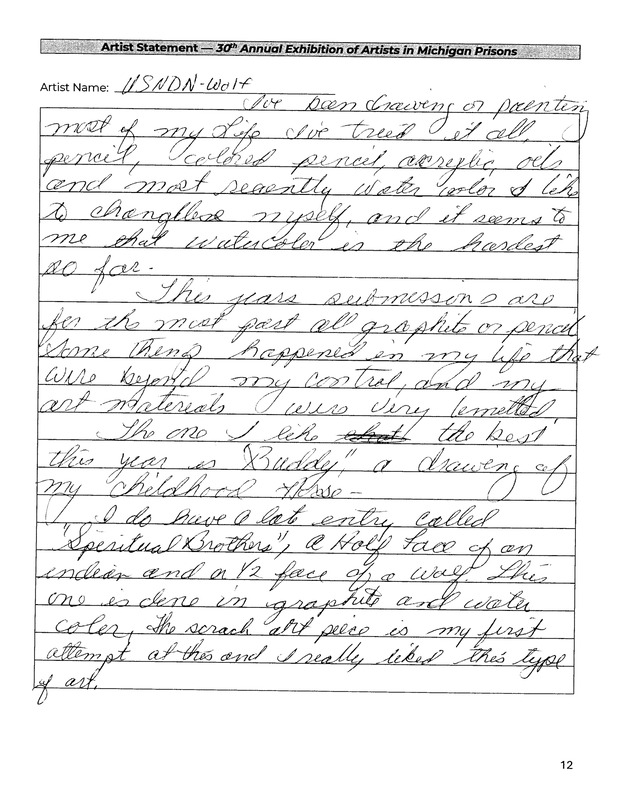 Artist Statement — 30th Annual Exhibition of Artists in Michigan Prisons
Artist Name: USNDN-Wolf
Ive been drawing or paenting
most of my Life Ive treed it all,
pencil, colored pencil, acreylic, oils
and most recently water color I like
to changllese myself, and it seems to
me that watercoler is the hardest
so far.
This years submissions are
for the most part all graphite or pencil
Some things happened in my life that
were beyond my control, and my
art materials were very lemetted.
The one I like the best
this year is "Buddy," a drawing of
my childhood Horse-
I do have a late entry called
"Speritual Brothers", a Half face of an
indean and a 1/2 face of a wolf. This
one is done in graphite and water
color, The scrach art peece is my first
attempt at this and I really liked this type
of art.
12